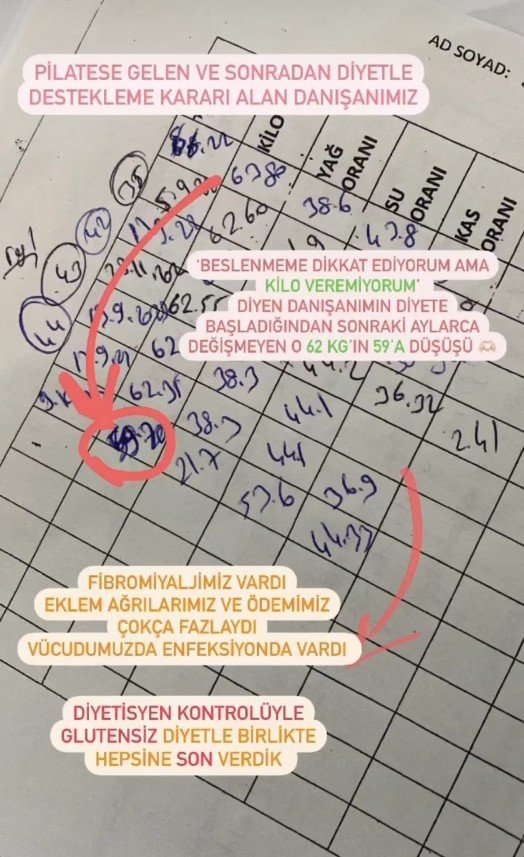 AD SOYAD:
PİLATESE GELEN VE SONRADAN DİYETLE
DESTEKLEME KARARI ALAN DANIŞANIMIZ
KİLO
YAĞ
ORANI
SU
ORANI
KAS
ORANI
35
42
43
44
62.60
38.6
47.8
'BESLENMEME DİKKAT EDİYORUM AMA
KİLO VEREMİYORUM'
DİYEN DANIŞANIMIN DİYETE
BAŞLADIĞINDAN SONRAKİ AYLARCA
DEĞİŞMEYEN O 62 KG'IN 59'A DÜŞÜŞÜ 🫶🏻
62.35
38.3
44.1
36.32
2.41
38.3
44.1
36.9
21.7
53.6
44.33
FİBROMİYALJİMİZ VARDI
EKLEM AĞRILARIMIZ VE ÖDEMİMİZ
ÇOKÇA FAZLAYDI
VÜCUDUMUZDA ENFEKSİYONDA VARDI
DİYETİSYEN KONTROLÜYLE
GLUTENSİZ DİYETLE BİRLİKTE
HEPSİNE SON VERDİK